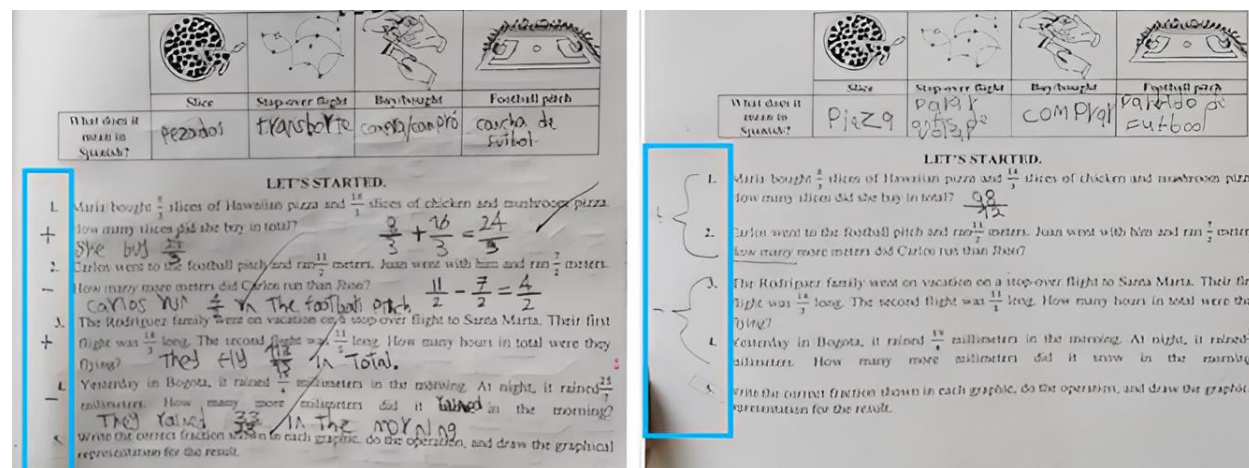 Slice Stop-over flight Buy/bought Football pitch
What does it mean in Spanish?
pezados transborte compra/compró cancha de futbol.
LET'S STARTED.
1. Maria bought 8/3 slices of Hawaiian pizza and 16/3 slices of chicken and mushroom pizza.
How many slices did she buy in total?
8/3 + 16/3 = 24/3
She buy
2. Carlos went to the football pitch and ran 11/2 meters. Juan went with him and ran 7/2 meters.
How many more meters did Carlos run than Jhon?
11/2 - 7/2 = 4/2
carlos run 4/2 in The football pitch.
3. The Rodriguez family went on vacation on a stop-over flight to Santa Marta. Their first
flight was long. The second flight was long. How many hours in total were they
flying? They fly in Total.
4. Yesterday in Bogota, it rained millimeters in the morning. At night, it rained
millimeters. How many more milimeters did it rained in the morning?
They rained in the morning
5. Write the correct fraction shown in each graphic, do the operation, and draw the graphical
representation for the result.
+
-
+
-
Slice Stop-over flight Buy/bought Football pitch
What does it mean in Spanish?
Pieza parar comprar de futbool
LET'S STARTED.
1. Maria bought 8/3 slices of Hawaiian pizza and slices of chicken and mushroom pizza
How many slices did she buy in total? 98/12
2. Carlos went to the football pitch and ran 11/2 meters. Juan went with him and ran 7/2 meters
How many more meters did Carlos run than Jhon?
3. The Rodriguez family went on vacation on a stop-over flight to Santa Marta. Their fir
flight was long. The second flight was long. How many hours in total were the
flying?
4. Yesterday in Bogota, it rained millimeters in the morning. At night, it rained
millimeters. How many more milimeters did it snow in the morning
5. Write the correct fraction shown in each graphic, do the operation, and draw the graphic
representation for the result.
+
-